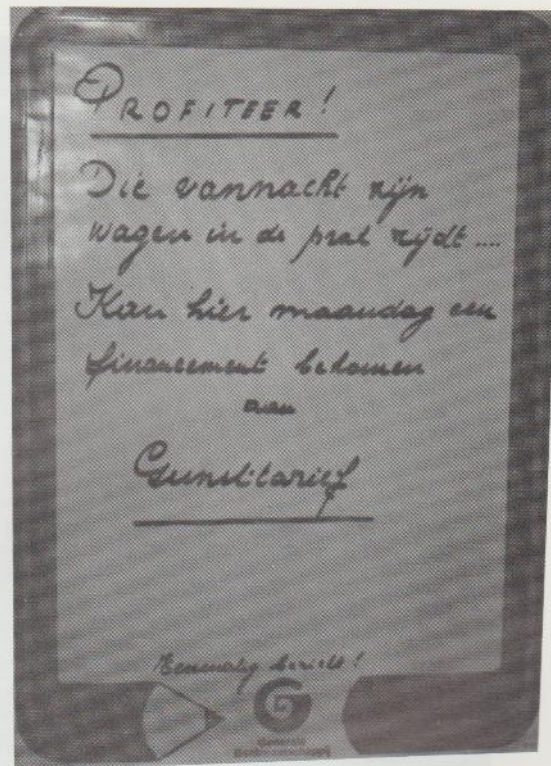 PROFITEER!
Die vannacht zijn
wagen in de prak rijdt ....
Kan hier maandag een
financement bekomen
aan
Gunsttarief
Eenmalig bericht!
Generale
Bankmaatschappij